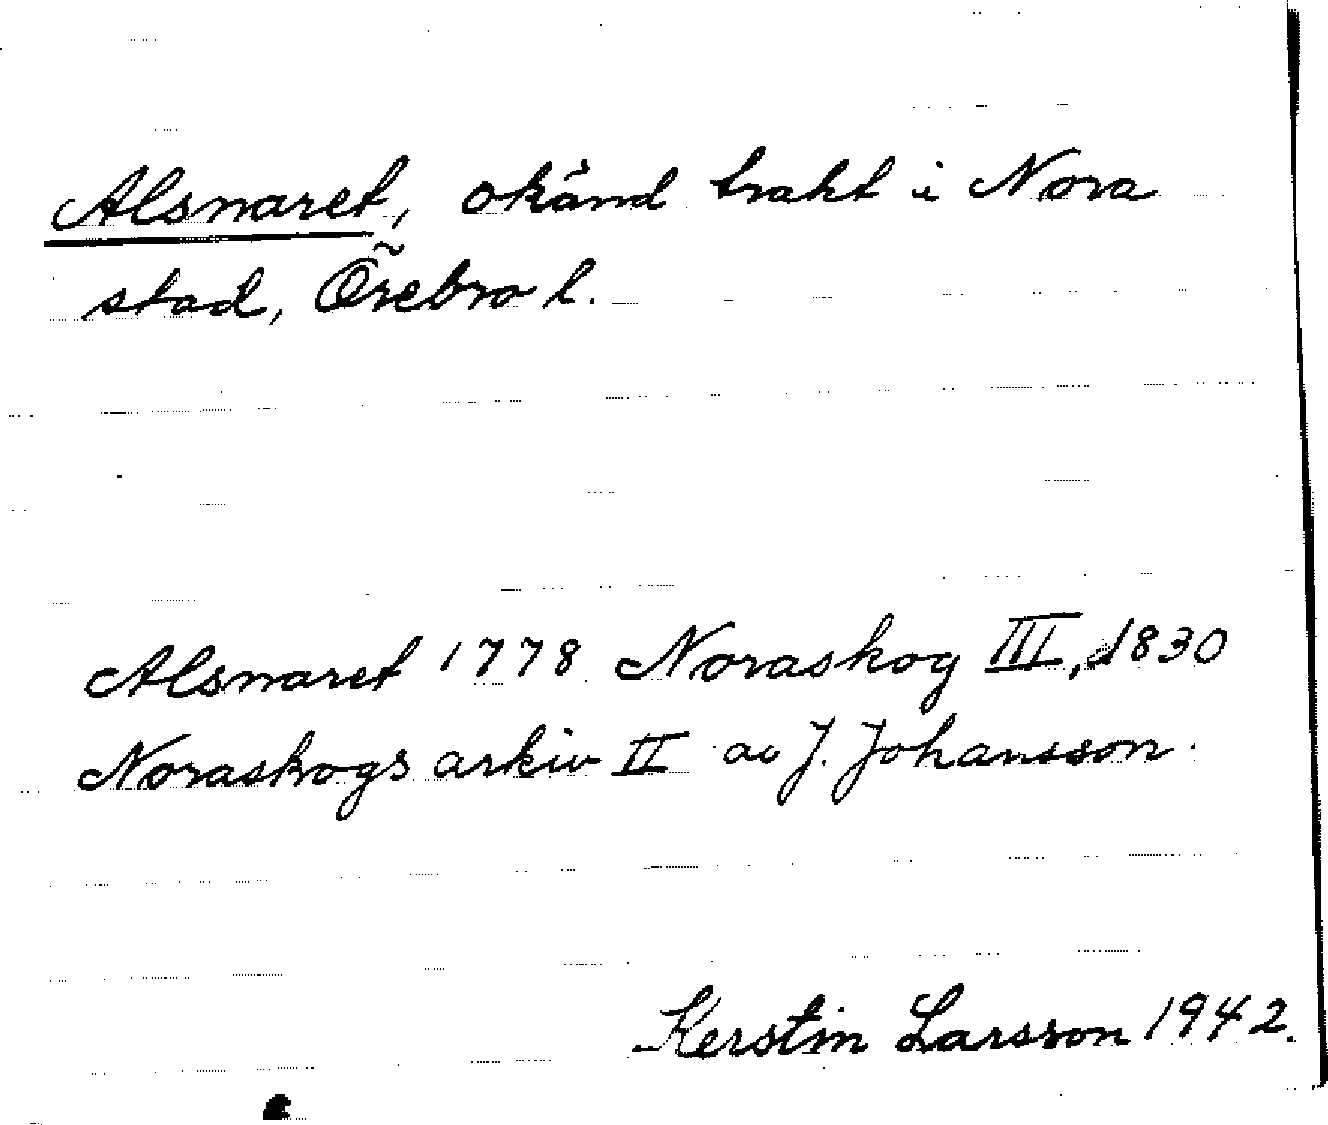 Alsnaret, okänd trakt i Nora
stad, Örebro l.
Alsnaret 1778 Noraskog III, 1830
Noraskogs arkiv II av J. Johansson.
Kerstin Larsson 1942.